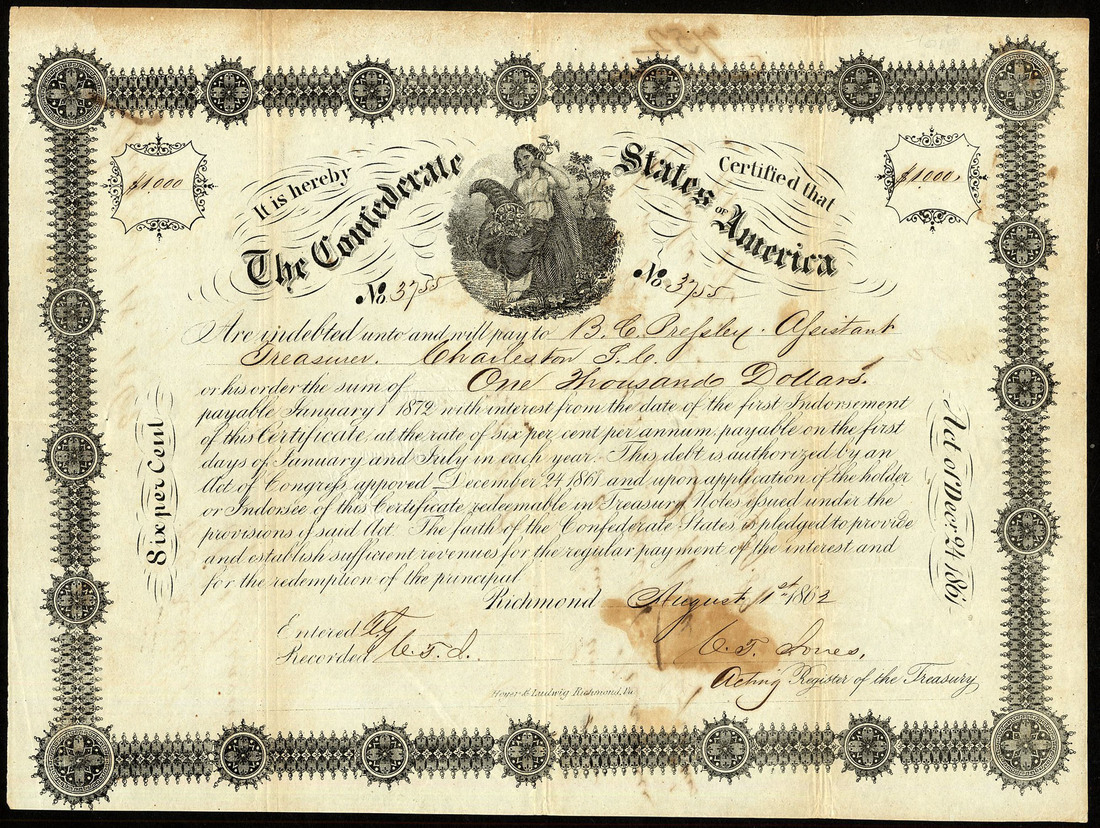 $1000
$1000
It is hereby Certified that
The Confederate States OF America
No 3755 No 3755
Are indebted unto and will pay to B. C. Pressley. Assistant
Treasurer. Charleston S. C.
or his order the sum of One Thousand Dollars.
payable January 1 1872 with interest from the date of the first Indorsement
of this Certificate, at the rate of six per cent per annum, payable on the first
days of January and July in each year. This debt is authorized by an
Act of Congress appoved December 24 1861 and upon application of the holder
or Indorsee of this Certificate redeemable in Treasury Notes issued under the
provisions of said Act. The faith of the Confederate States is pledged to provide
and establish sufficient revenues for the regular payment of the interest and
for the redemption of the principal
Six per Cent
Act of Dec: 24 1861
Richmond August 1st 1862
Entered
Recorded C. T. J.
C. T. Jones,
Acting Register of the Treasury
Hoyer & Ludwig Richmond, Va